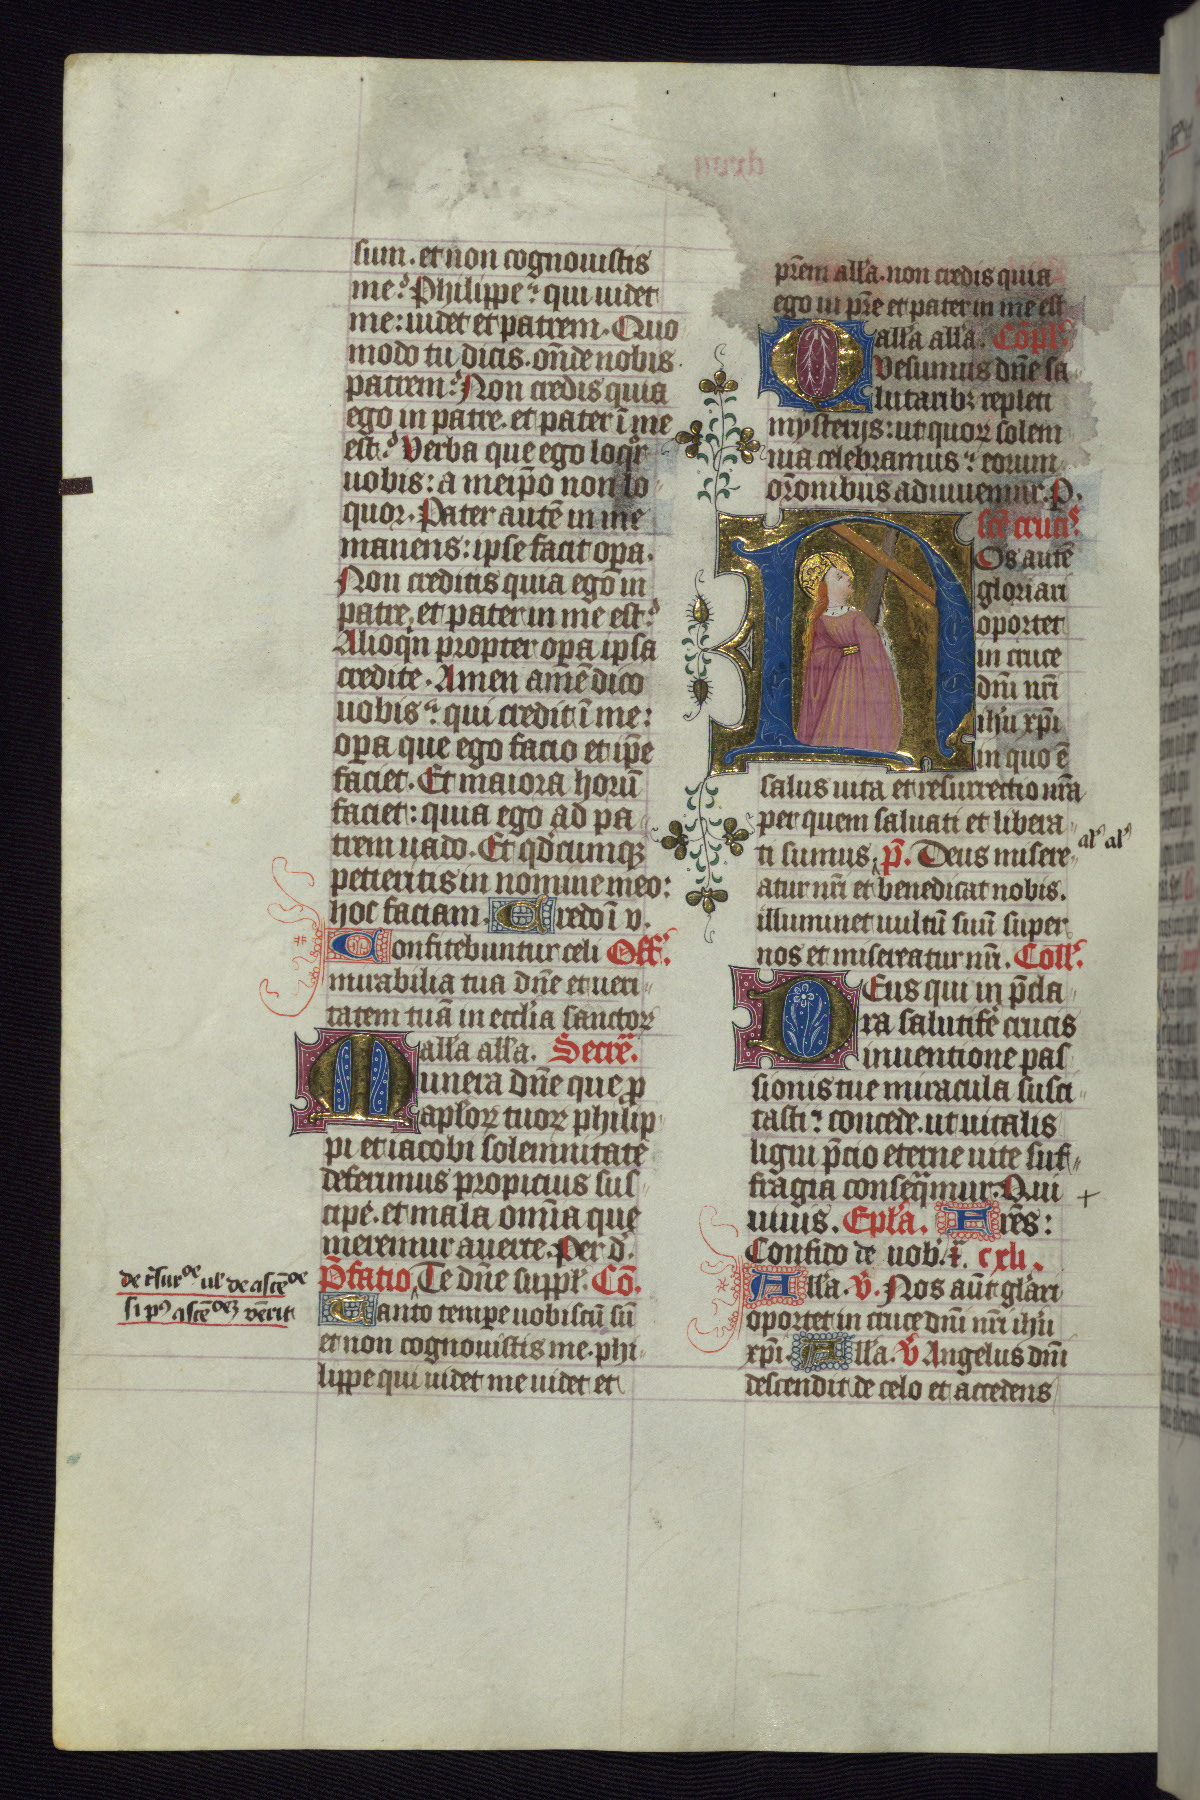 sum. et non cognouistis
me? Philippe: qui uidet
me: uidet et patrem. Quo
modo tu dicis. onde nobis
patrem? Non credis quia
ego in patre. et pater ī me
est? Verba que ego loqr
uobis: a meip̄o non lo
quor. Pater autē in me
manens: ipse facit op̄a.
Non creditis quia ego in
patre. et pater in me est?
Alioqn propter op̄a ipsa
credite. Amen amē dico
uobis: qui credit ī me:
op̄a que ego facio et ip̄e
faciet. Et maiora horū
faciet: quia ego ad pa
trem uado. Et qdcumqꝫ
petieritis in nomine meo:
hoc faciam. Credo ī v.
Confitebuntur celi Off.
mirabilia tua dn̄e et ueri
tatem tuā in eccl̄ia sanctoꝝ
all'a all'a. Secre.
Munera dn̄e que ꝓ
ap̄loꝝ tuoꝝ philip
pi et iacobi solemnitate
deferimus propicius sus
cipe. et mala omīa que
meremur auerte. Per d.
P̄fatio. Te dn̄e suppl. Cō.
Tanto tempe uobiscū sū
et non cognouistis me. phi
lippe qui uidet me uidet et
si p9 ascē verit
pr̄em all'a. non credis quia
ego in pr̄e et pater in me est
all'a all'a. Cōpl.
Quesumus dn̄e sa
lutaribꝫ repleti
mysterijs: ut quoꝝ solem
nia celebramus: eorum
or̄onibus adiuuemur. P.
sc̄e cruc.
Nos autē
gloriari
oportet
in cruce
dn̄i nr̄i
ih'u xp̄i
in quo ē
salus uita et resurrectio nr̄a
per quem saluati et libera
ti sumus. p̄. Deus misere
al' al'
atur nr̄i et benedicat nobis.
illuminet uultū suū super
nos et misereatur nr̄i. Coll.
Deus qui in p̄cla
ra salutifē crucis
inuentione pas
sionis tue miracula susci
tasti: concede. ut uitalis
ligni p̄cio eterne uite suf
fragia conseqmur. Qui
uiuis. Epl'a. Fres:
Confido de uob. R. cxli.
All'a. V. Nos aut glari
oportet in cruce dn̄i nr̄i ih'u
xp̄i. All'a. V Angelus dn̄i
descendit de celo et accedens